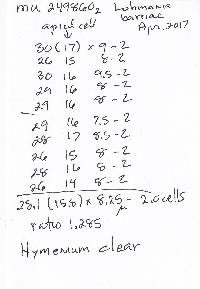 MU 249860₂ Lohmania
apical cell barriae
Apr. 2017
30 (17) x 9 - 2
26 15 8 - 2
30 16 9.5 - 2
29 16 8 - 2
29 16 8 - 2
29 16 7.5 - 2
28 17 8.5 - 2
26 15 8 - 2
28 16 8 - 2
26 14 8 - 2
28.1 (15.8) x 8.25 μ - 2.0 cells
ratio 1.285
Hymenium clear